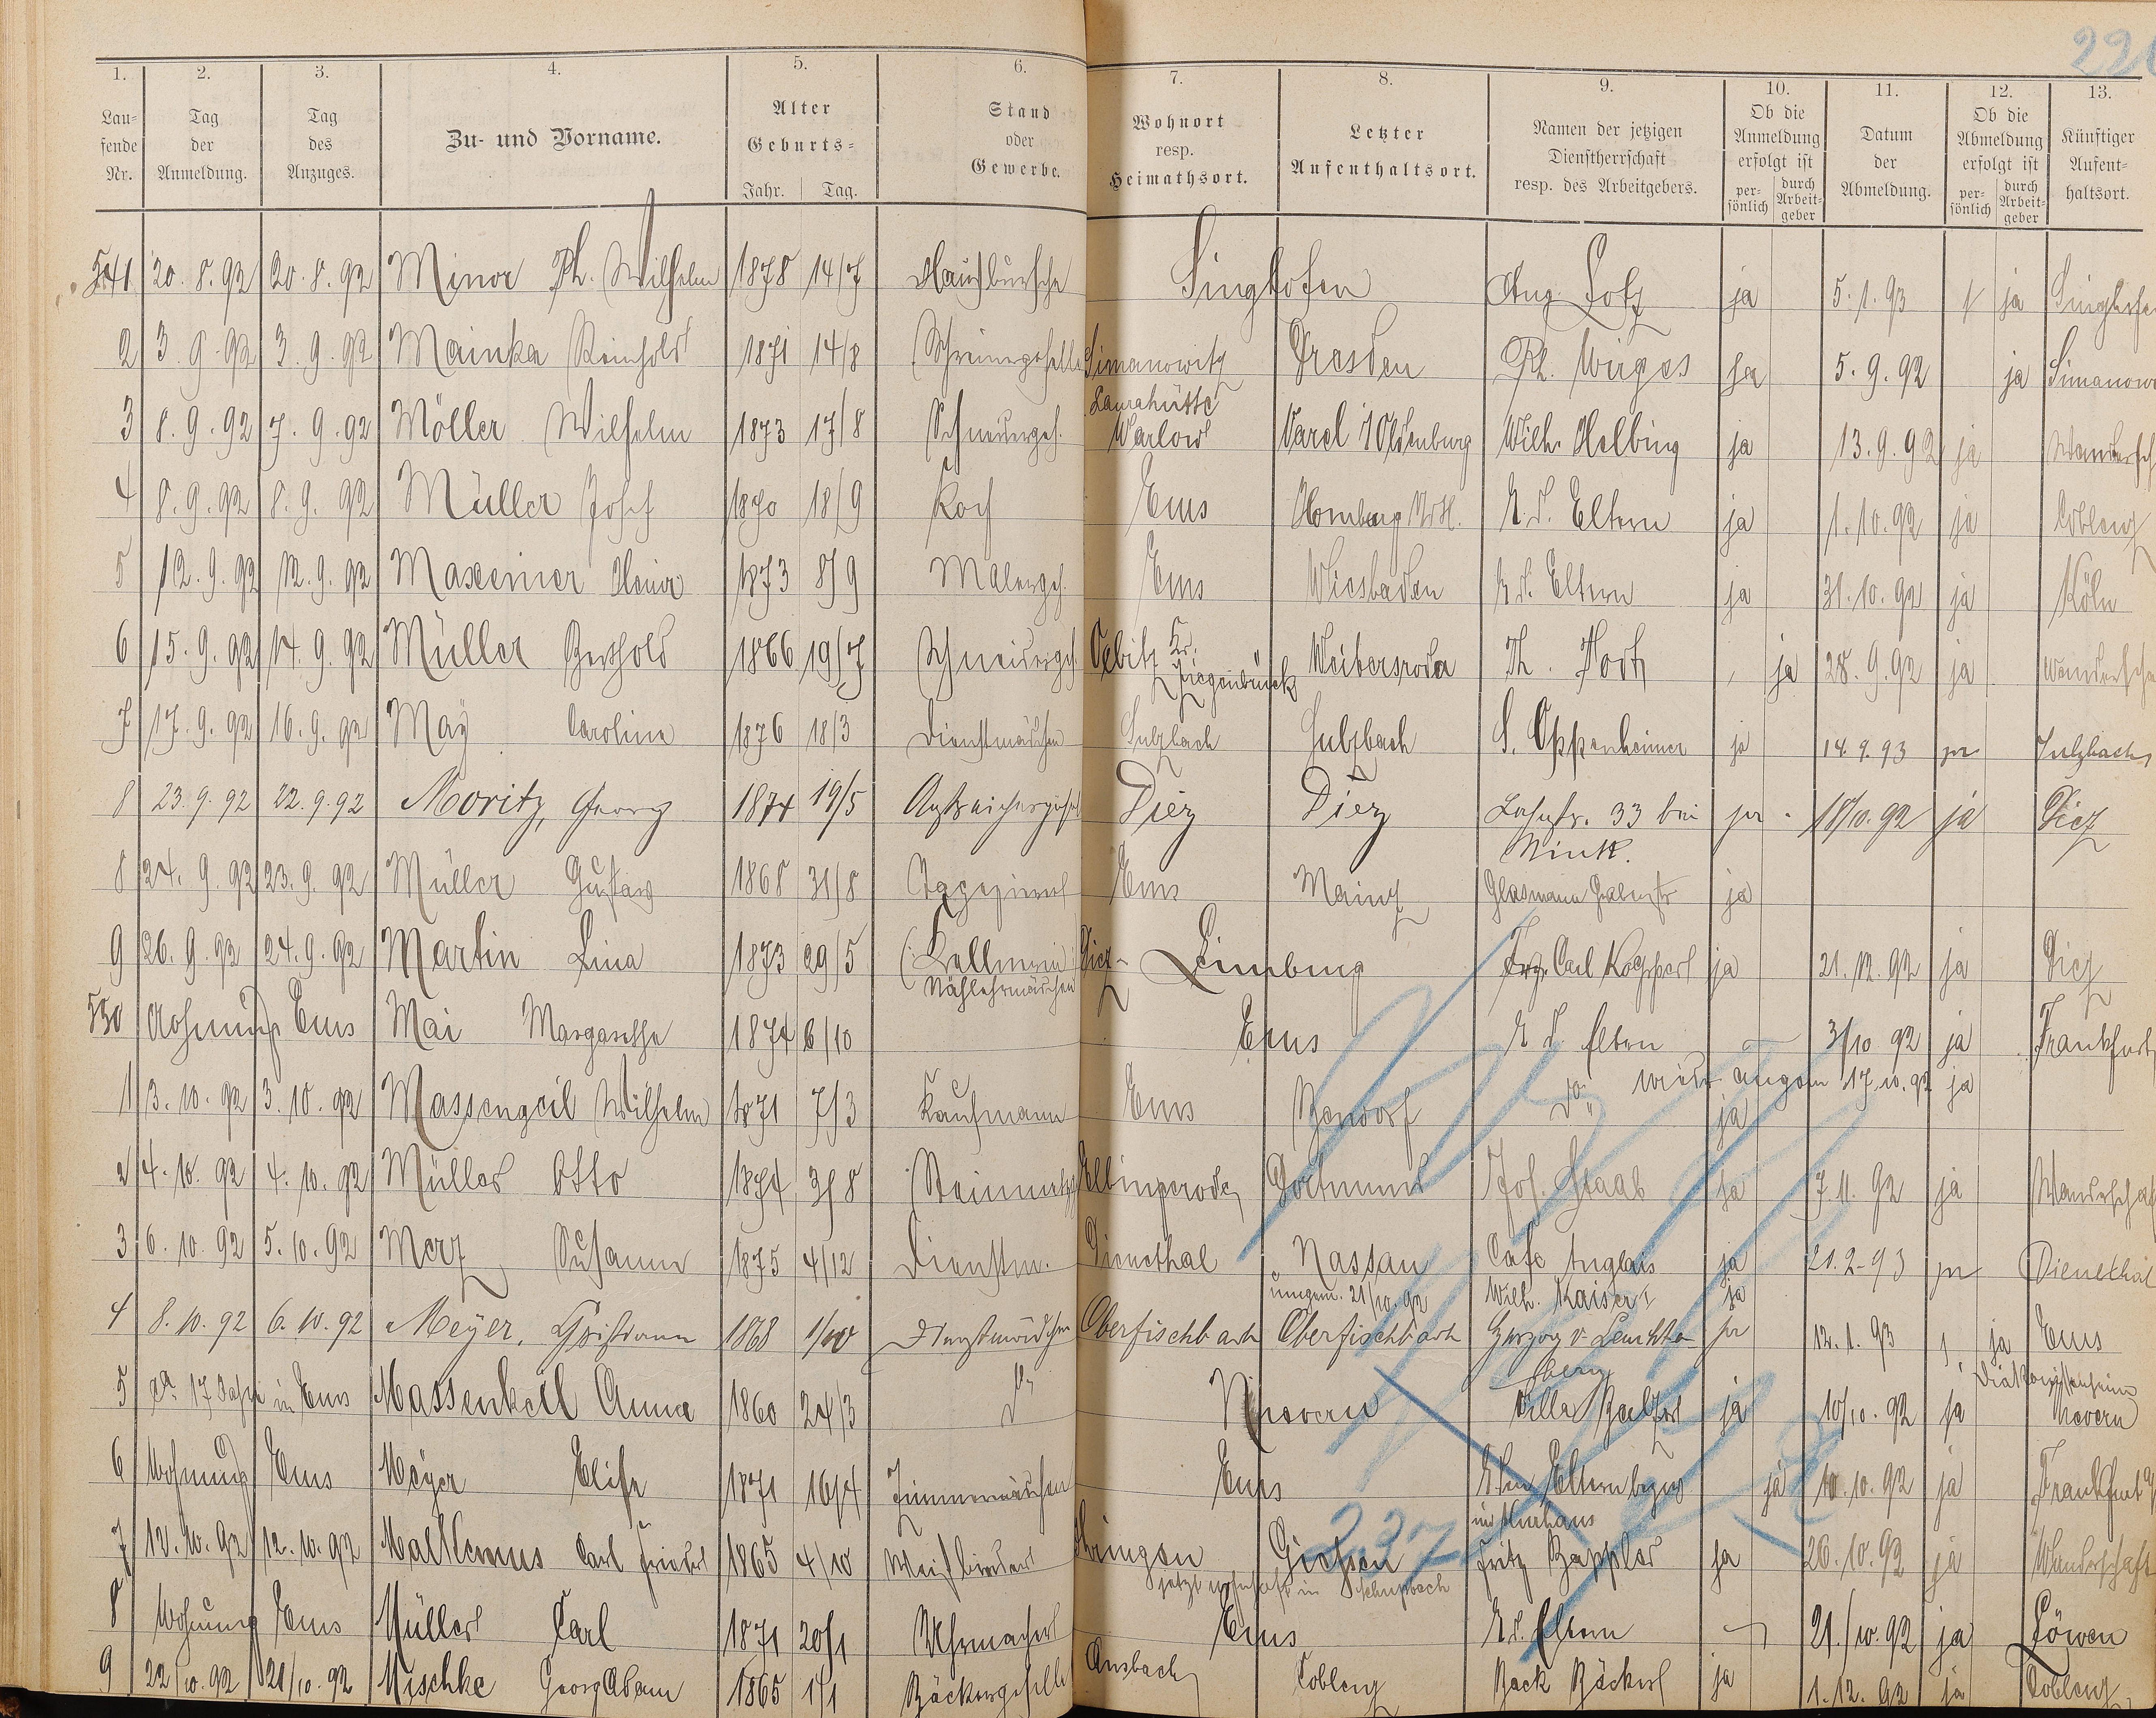 1. 2. 3. 4. 5. 6. 7. 8. 9. 10. 11. 12. 13.
Lau-
fende
Nr.
Tag
der
Anmeldung.
Tag
des
Anzuges.
Zu- und Vorname.
Alter
Geburts-
Jahr. Tag.
Stand
oder
Gewerbe.
Wohnort
resp.
Heimathsort.
Letzter
Aufenthaltsort.
Namen der jetzigen
Dienstherrschaft
resp. des Arbeitgebers.
Ob die
Anmeldung
erfolgt ist
per-
sönlich
durch
Arbeit-
geber
Datum
der
Abmeldung.
Ob die
Abmeldung
erfolgt ist
per-
sönlich
durch
Arbeit-
geber
Künftiger
Aufent-
haltsort.
541 20.8.92 20.8.92 Minor Ph. Wilhelm 1878 14/7 Hausbursche Singhofen Aug. Lotz ja 5.1.93 ja Singhofen
2 3.9.92 3.9.92 Mainka Reinhold 1871 14/8 Schreinergeselle Simanowitz Dresden Ph. Wirges ja 5.9.92 ja Simanow
Laurahütte
3 8.9.92 7.9.92 Möller Wilhelm 1873 17/8 Schneiderges. Warlow Varel i/Oldenburg Wilh. Helbing ja 13.9.92 ja Wandersch
4 8.9.92 8.9.92 Müller Josef 1870 18/9 Koch Ems Homburg v.d.H. b. d. Eltern ja 1.10.92 ja Coblenz
5 12.9.92 12.9.92 Maxeiner Heinr 1873 8/9 Malergeh. Ems Wiesbaden b. d. Eltern ja 31.10.92 ja Köln
6 15.9.92 14.9.92 Müller Berthold 1866 19/7 Schneiderges. Oebitz Kr. Weibersroda Th. ja 28.9.92 ja Wanderscha
Ziegenrück
7 17.9.92 16.9.92 May Caroline 1876 18/3 Dienstmädchen Sulzbach Sulzbach S. Oppenheimer ja 14.9.93 ja Sulzbach
8 23.9.92 22.9.92 Moritz, Georg 1874 19/5 Anstreichergehül Diez Diez Lahnstr. 33 bei ja 18/10.92 ja Diez
Mink.
8 24.9.92 23.9.92 Müller Gustav 1868 31/8 Tapezierer Ems Mainz Glasmann Grabenstr ja
9 26.9.92 24.9.92 Martin Lina 1873 29/5 (Kellnerin Diez Limburg Frz. Carl Koppert ja 21.12.92 ja Diez
Nählehrmädchen
550 Wohnung Ems Mai Margarethe 1874 6/10 Ems b. d. Eltern 3/10 92 ja Frankfurt
wieder angem 17.10.92 ja
1 3.10.92 3.10.92 Massengeil Wilhelm 1871 7/3 Kaufmann Ems Bendorf do ja
2 4.10.92 4.10.92 Müller Otto 1874 3/8 Steinmetz Ellingerode Dortmund Jos. Staab ja 7.11.92 ja Wanderschaf
3 6.10.92 5.10.92 Merz Susanne 1875 4/12 Dienstm. Dienethal Nassau Cafe Anglais ja 21.2.93 ja Dienethal
umgem. 21/10.92 Wilh. Kaiser I ja
4 8.10.92 6.10.92 Meyer, Christiane 1868 Dienstmädchen Oberfischbach Oberfischbach Herzog v. Leuchten ja 12.1.93 ja Ems
berg Diakonissenheim
5 ca 17 Jahre in Ems Massenkeil Anna 1860 24/3 do Nievern Villa Balzer ja 10/10.92 ja Nievern
6 Wohnung Ems Meyer Elise 1871 16/4 Zimmermädchen Ems b. den Eltern bezw ja 10.10.92 ja Frankfurt
im Kurhaus
7 12.10.92 12.10.92 Malkemus Carl Friedr 1865 4/10 Weißbinder Giessen Fritz Bappler ja 26.10.92 ja Wanderschaft
jetzt wohnhaft in Schupbach
8 Wohnung Ems Müller Carl 1871 20/1 Uhrmacher Ems b. d. Eltern 21./10.92 ja Löwen
9 22/10.92 21/10.92 Mischke Georg Adam 1865 1/1 Bäckergeselle Ansbach Coblenz Back Bäcker ja 1.12.92 ja Coblenz
237